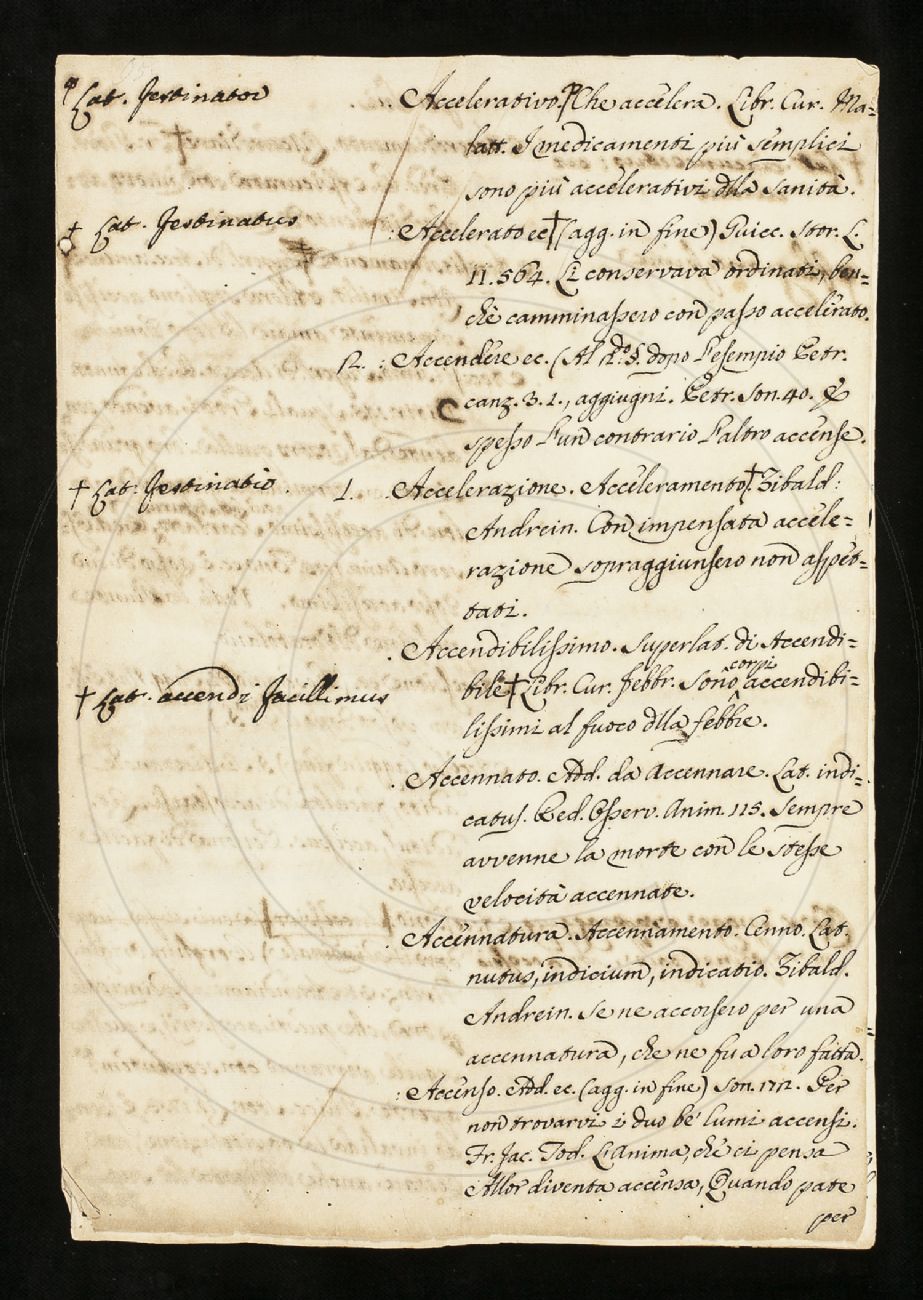 Lat. festinator
Accelerativo. Che accelera. Libr. Cur. Ma=
latt. I medicamenti più semplici
sono più accelerativi dlla sanità.
+ Lat. festinatus
: Accelerato ec+(agg. in fine) Guicc. Stor. L.
11. 564. Li conservava ordinati, ben=
chè camminassero con passo accelerato.
12. : Accendere ec. (Al d.º §. dopo l'esempio Petr.
canz. 3. 1., aggiugni. Petr. Son. 40. E
spesso l'un contrario l'altro accense.
+ Lat. festinatio.
1. Accelerazione. Acceleramento+. Zibald:
Andrein. Con impensata accele=
razione sopraggiunsero non aspet=
tati.
. Accendibilissimo. Superlat. di Accendi=
bile+Libr. Cur. febbr. Sono^corpi accendibi=
+ Lat. accendi facillimus
lissimi al fuoco dlla febbre.
. Accennato. Add. da Accennare. Lat. indi=
catus. Red. Osserv. Anim. 115. Sempre
avvenne la morte con le stesse
velocità accennate.
. Accennatura. Accennamento. Cenno. Lat.
nutus, indicium, indicatio. Zibald.
Andrein. Se ne accorsero per una
accennatura, che ne fu a loro fatta.
: Accenso. Add. ec. (agg. in fine) Son. 172. Per
non trovarvi i duo be' lumi accensi.
Fr. Jac. Tod. L'anima, che ci pensa
Allor diventa accensa, Quando pate
per